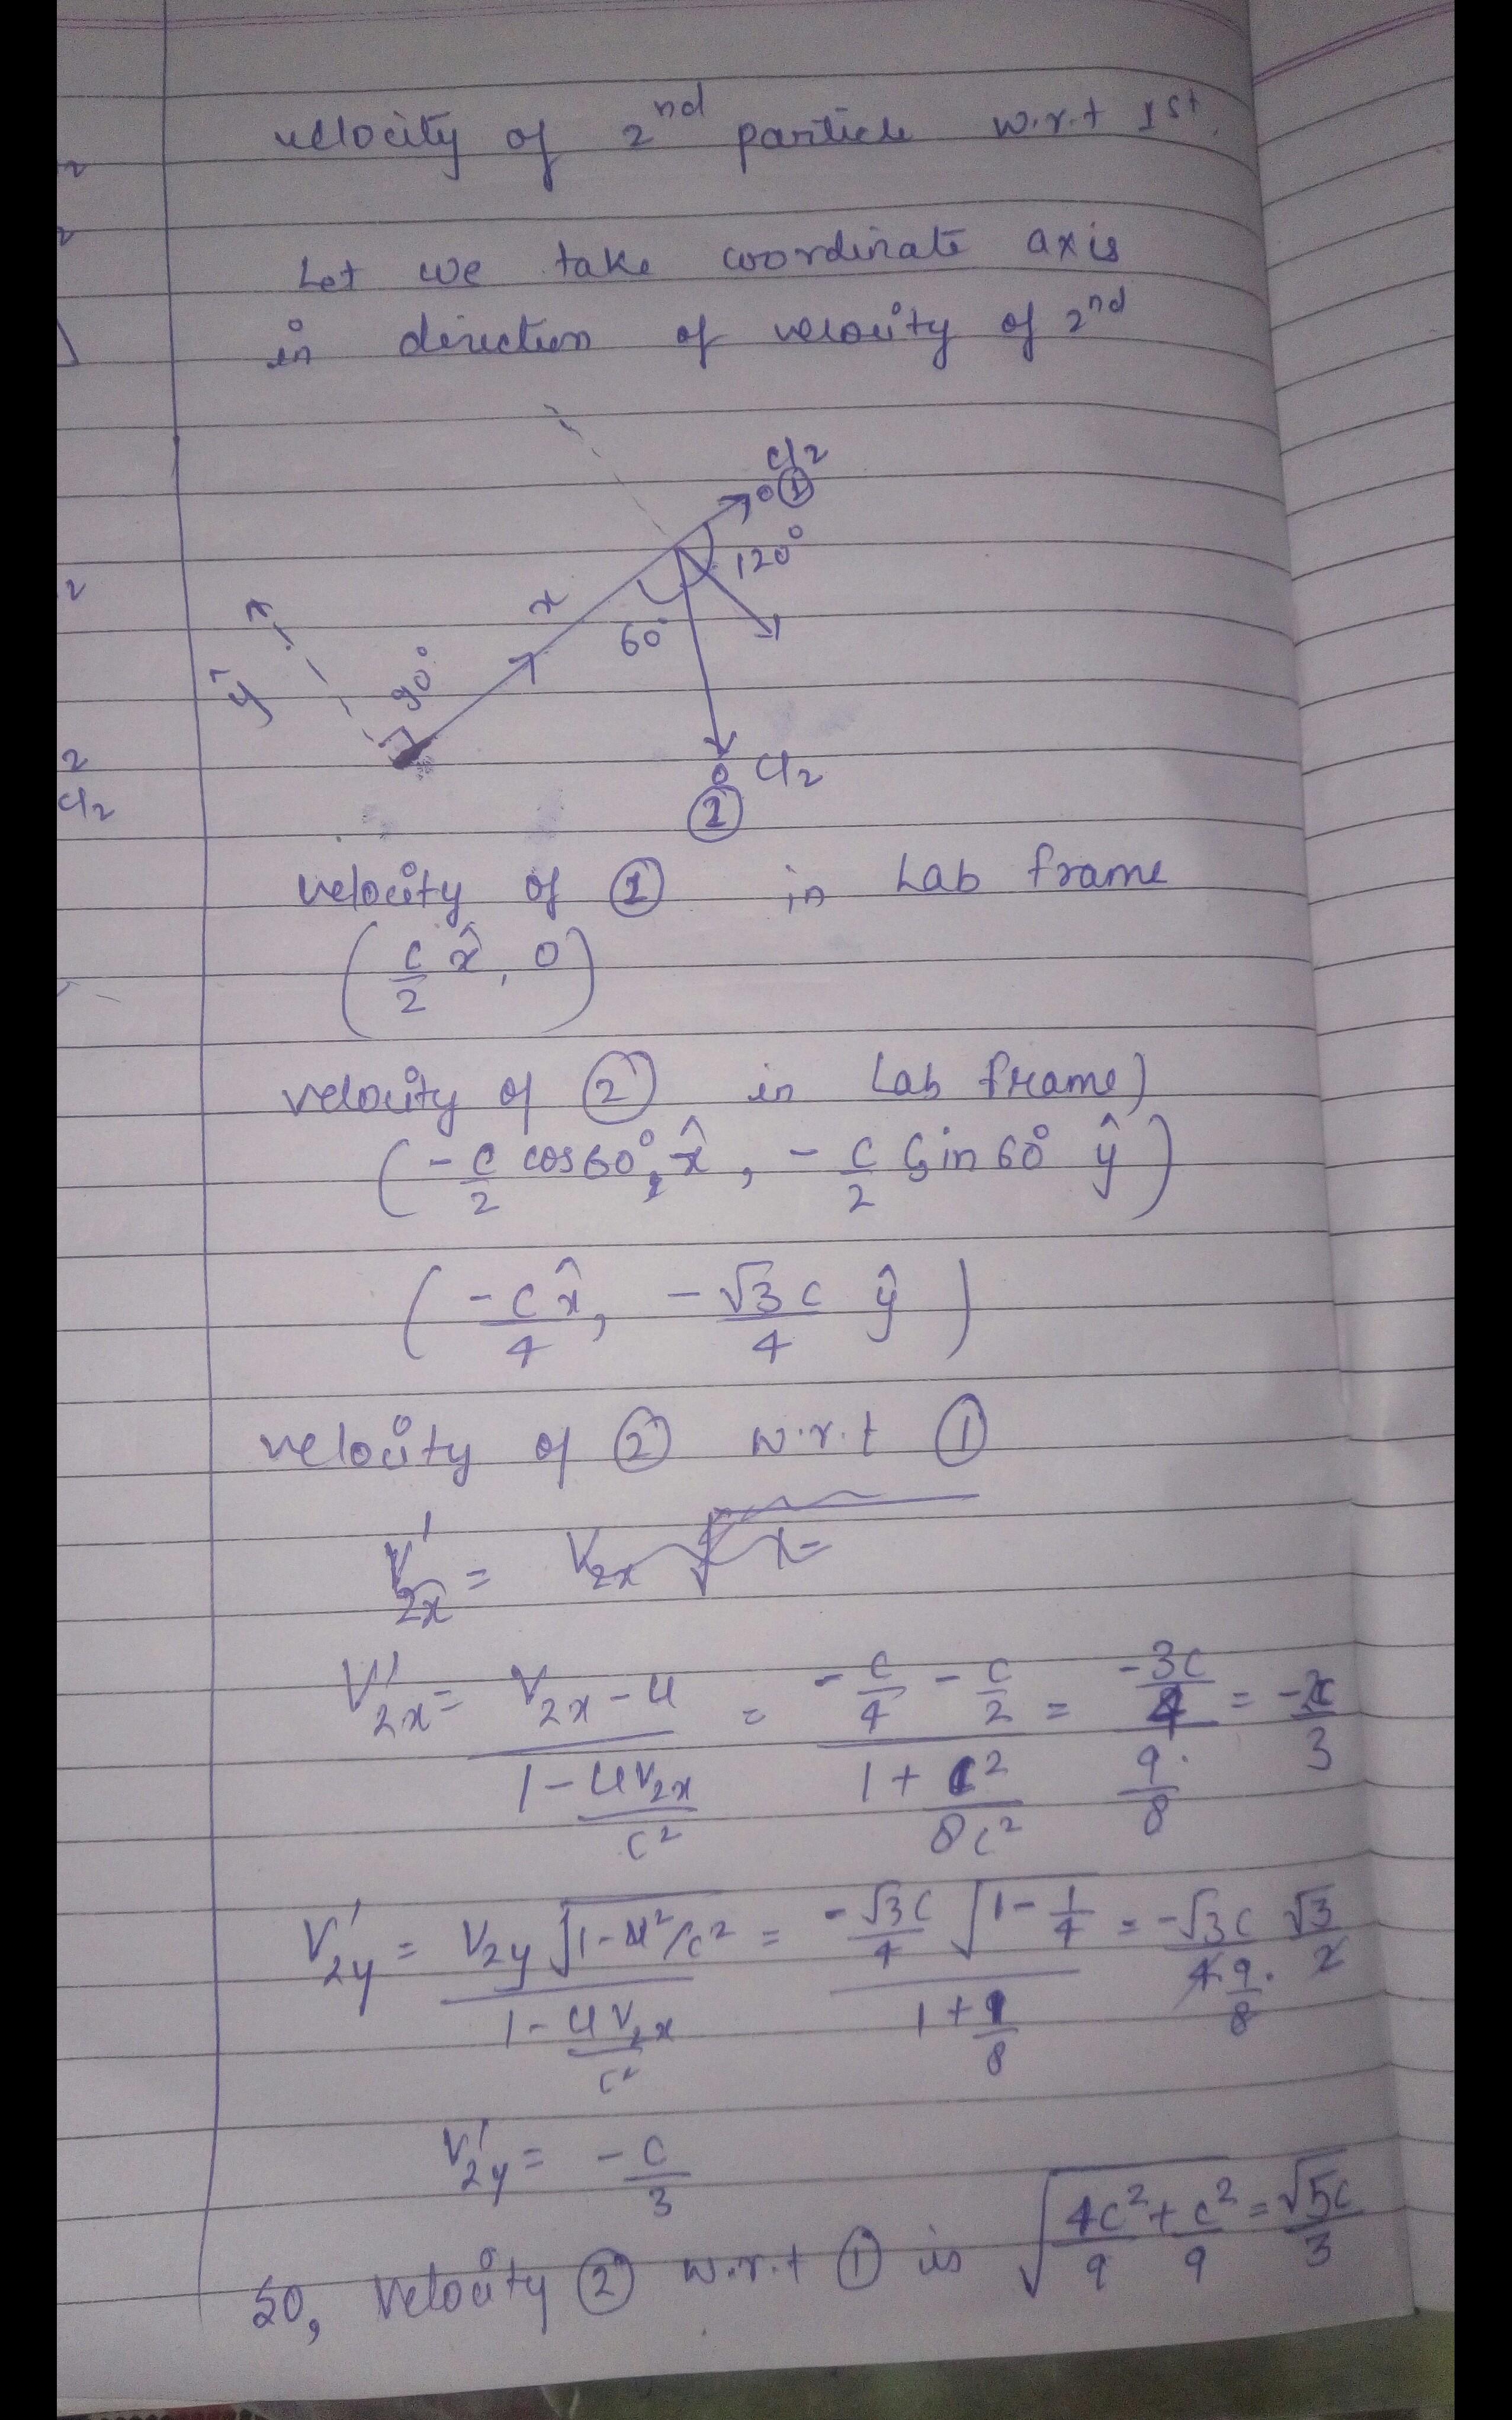 velocity of 2nd particle w.r.t 1st
Let we take coordinate axis
in direction of velocity of 2nd
c/2
①
120°
x
60°
90°
y
c/2
②
velocity of ① in Lab frame
(c/2 x̂, 0)
velocity of ② in Lab frame)
(-c/2 cos60° x̂, -c/2 Sin60° ŷ)
(-c x̂/4, -√3c/4 ŷ)
velocity of ② w.r.t ①
V'2x = V2x
V'2x = (V2x - u)/(1 - uV2x/c²) = (-c/4 - c/2)/(1 + c²/8c²) = (-3c/4)/(9/8) = -2c/3
V'2y = V2y √(1-u²/c²)/(1 - uV2x/c²) = (-√3c/4 √(1 - 1/4))/(1 + 1/8) = -√3c √3/(4 · 9/8 · 2)
V'2y = -c/3
So, velocity ② w.r.t ① is √(4c²/9 + c²/9) = √5c/3